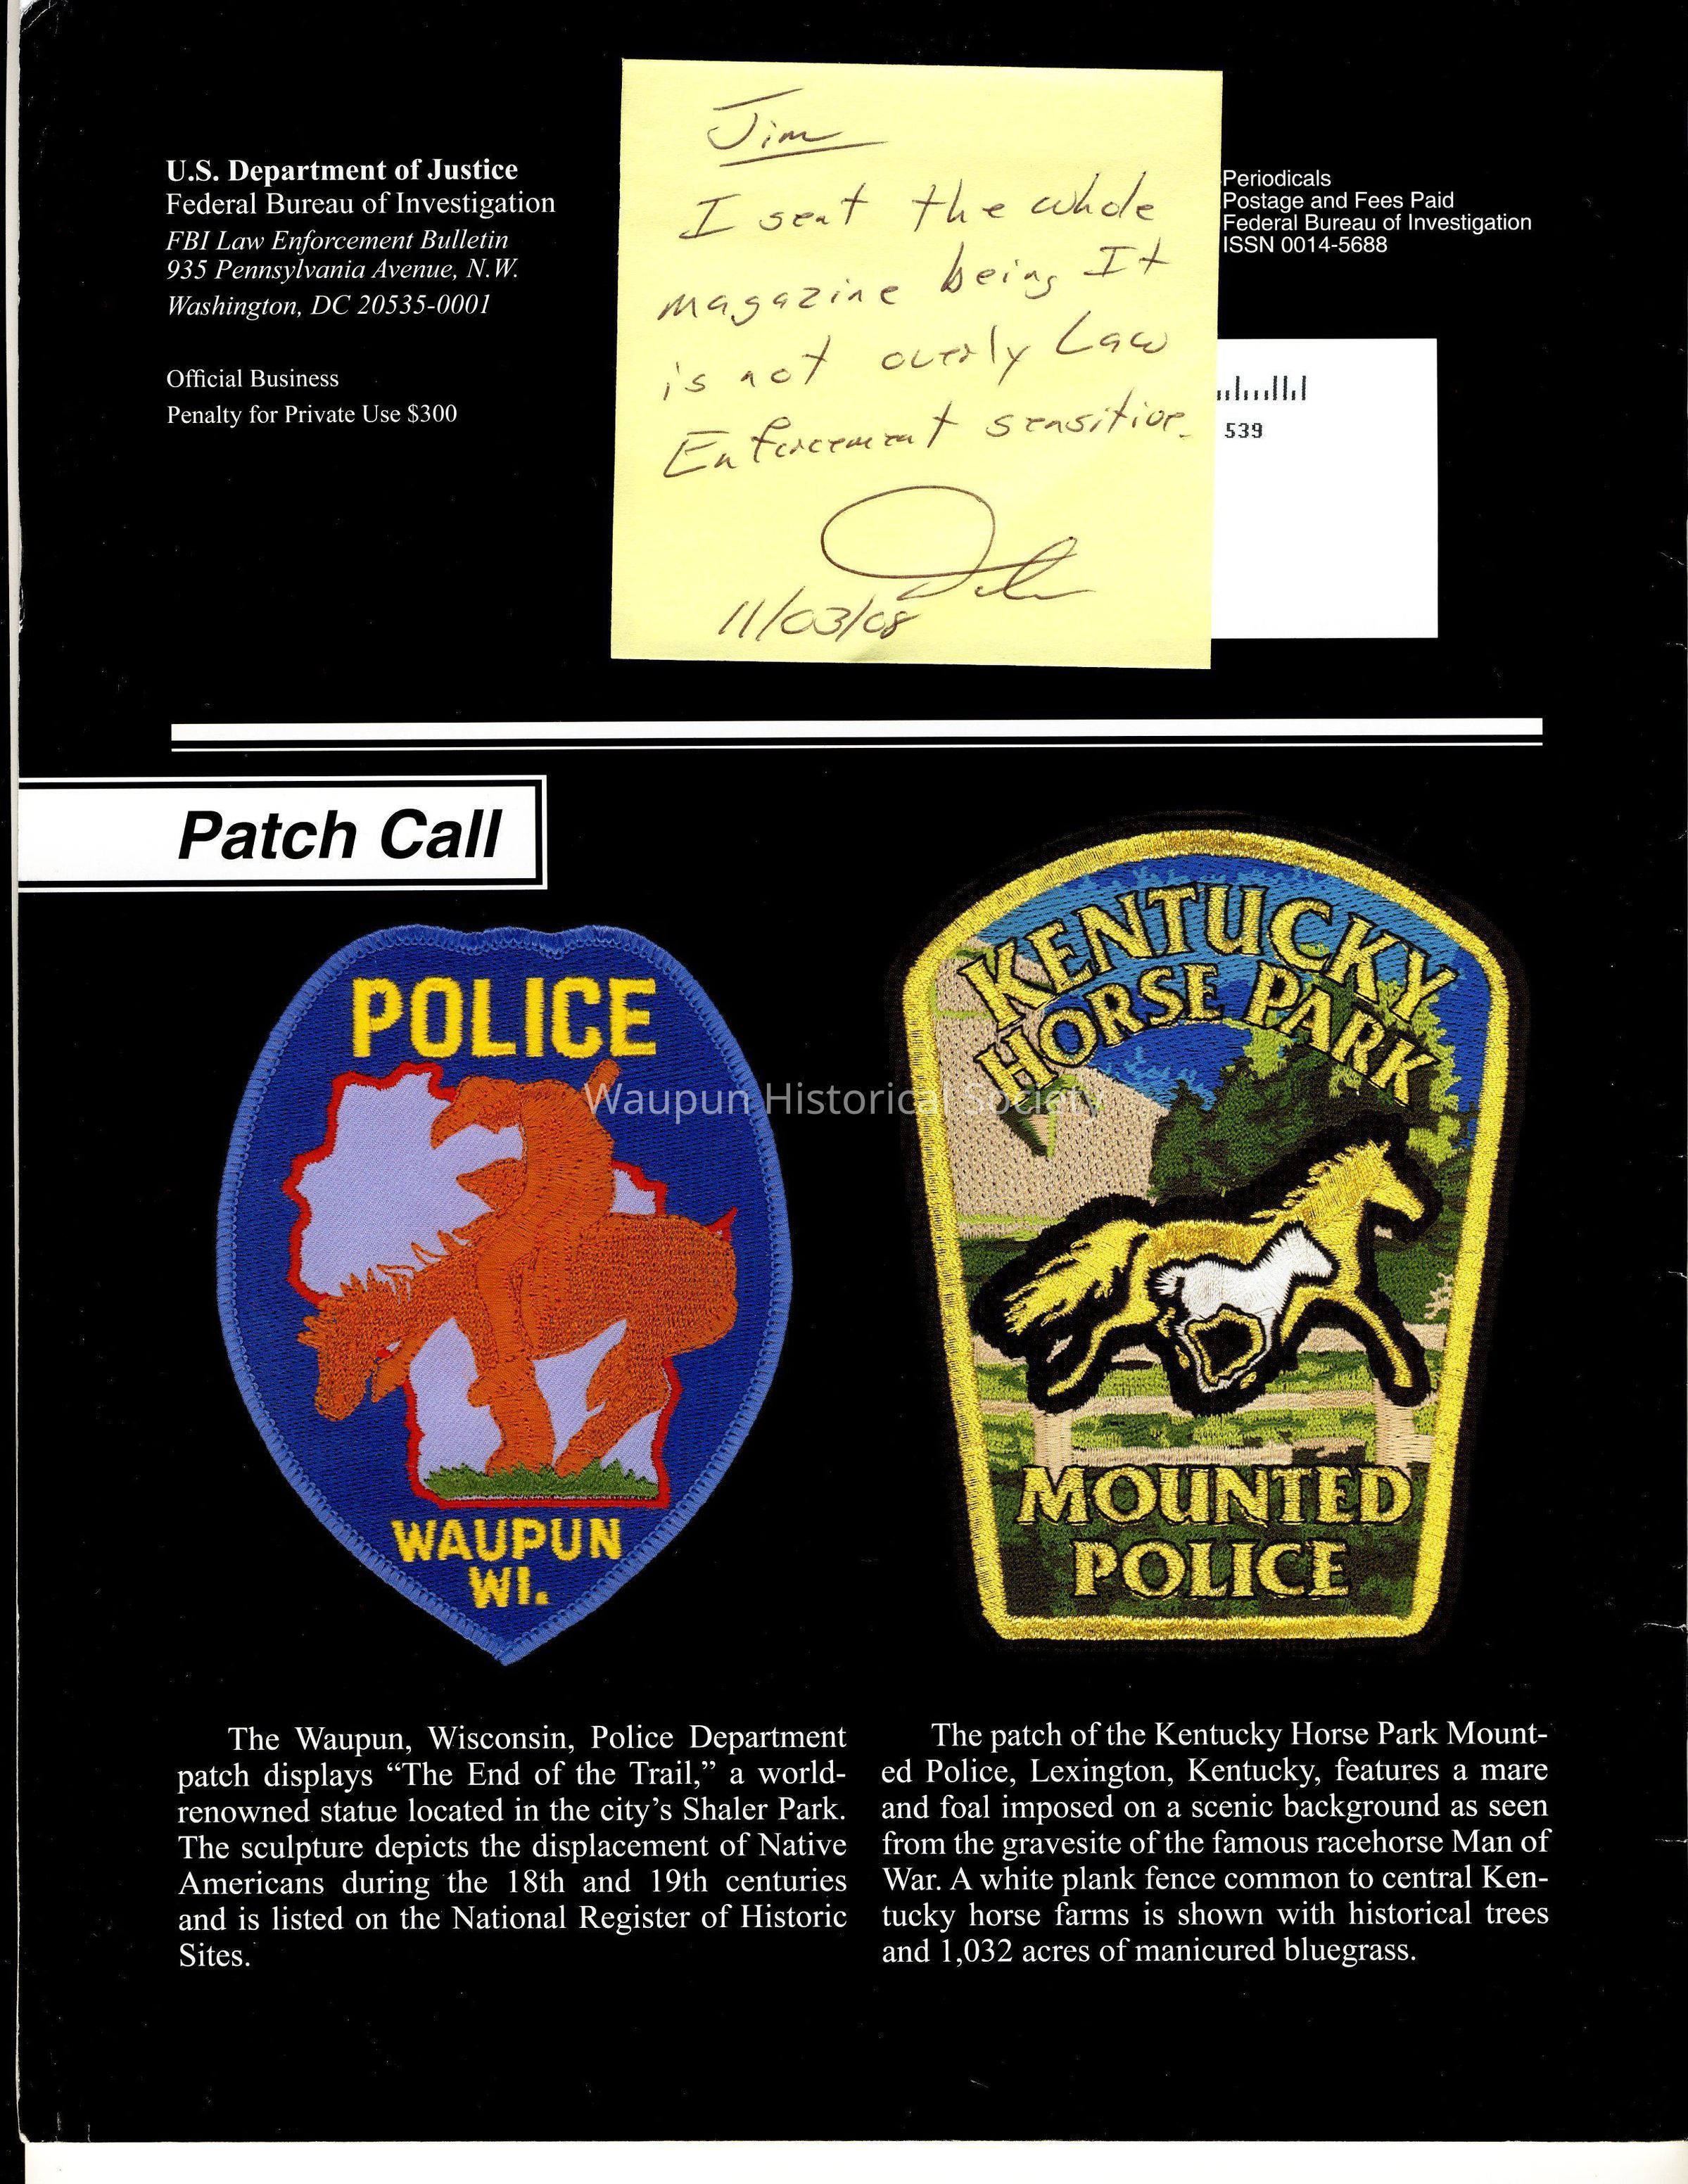 U.S. Department of Justice
Federal Bureau of Investigation
FBI Law Enforcement Bulletin
935 Pennsylvania Avenue, N.W.
Washington, DC 20535-0001
Official Business
Penalty for Private Use $300
Jim
I sent the whole
magazine being It
is not overly Law
Enforcement sensitive.
11/03/08
Periodicals
Postage and Fees Paid
Federal Bureau of Investigation
ISSN 0014-5688
539
Patch Call
POLICE
WAUPUN
WI.
KENTUCKY
HORSE PARK
MOUNTED
POLICE
Waupun Historical Society
The Waupun, Wisconsin, Police Department
patch displays “The End of the Trail,” a world-
renowned statue located in the city’s Shaler Park.
The sculpture depicts the displacement of Native
Americans during the 18th and 19th centuries
and is listed on the National Register of Historic
Sites.
The patch of the Kentucky Horse Park Mount-
ed Police, Lexington, Kentucky, features a mare
and foal imposed on a scenic background as seen
from the gravesite of the famous racehorse Man of
War. A white plank fence common to central Ken-
tucky horse farms is shown with historical trees
and 1,032 acres of manicured bluegrass.